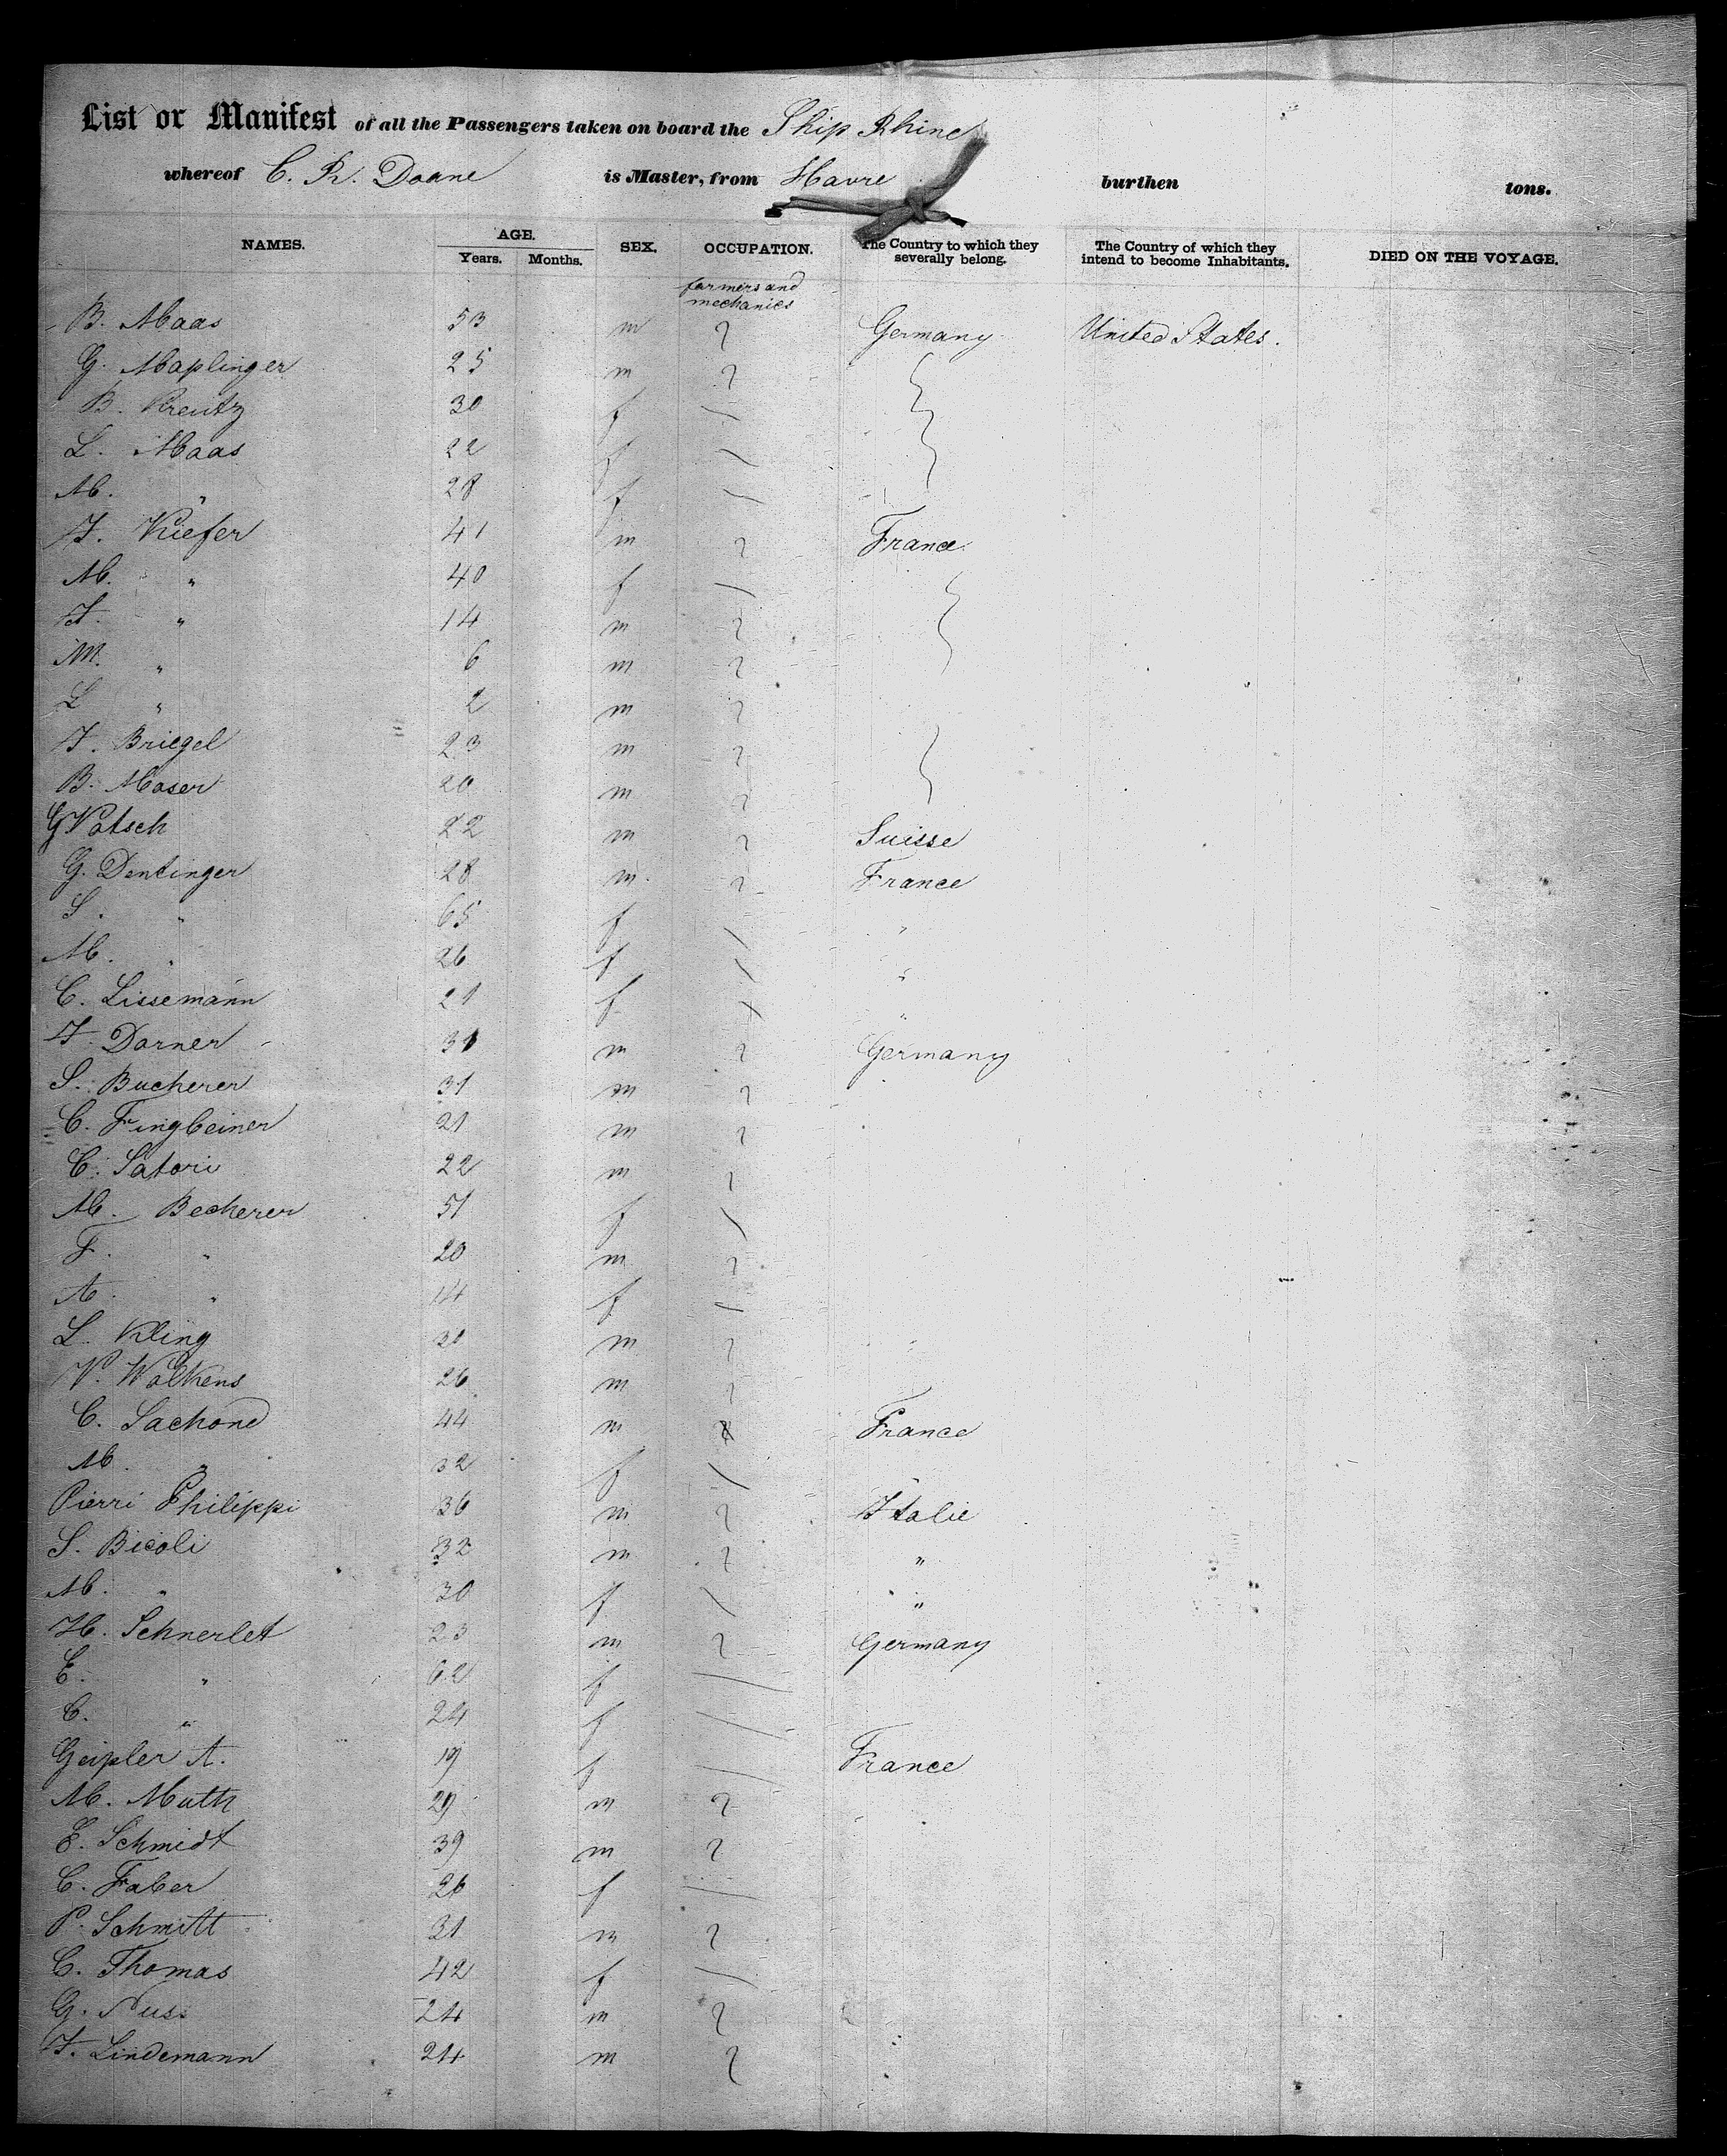 List or Manifest of all the Passengers taken on board the Ship Rhine
whereof C. R. Doane is Master, from Havre burthen tons.
NAMES. AGE. Years. Months. SEX. OCCUPATION. The Country to which they severally belong. The Country of which they intend to become Inhabitants. DIED ON THE VOYAGE.
farmers and
mechanics
B. Maas 53 m Germany United States.
G. Maplinger 25 m
B. Kreutz 30 f
L. Maas 22 f
M. " 28 f
J. Kiefer 41 m France
M. " 40 f
J. " 14 m
M. " 6 m
L " 2 m
J. Briegel 23 m
B. Moser 20 m
G Votsch 22 m Suisse
G. Dentinger 28 m. France
S. " 65 f "
M. " 26 f "
C. Lissemann 21 f "
J. Dorner 31 m Germany
S. Bucherer 31 m
C. Fingbeiner 21 m
C. Satori 22 m
M. Becherer 51 f
F. " 20 m
A. " 14 f
L. Kling m
V. Walkens 26 m
C. Sachond 44 m France
M. " 32 f
Pierri Philippi 36 m Italie
S. Bicoli 32 m "
M. " 30 f "
H. Schnerlet 23 m Germany
E. " 62 f
C. " 24 f
Geipler A. 19 f France
M. Muth 29 m
E. Schmidt 39 m
C. Faber 26 f
P. Schmitt 31 m
C. Thomas 42 f
G. Nuss 24 m
J. Lindemann 24 m